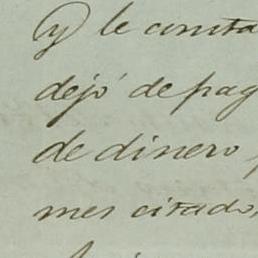 y le consta
dejó de pag
de dinero
mes citado,